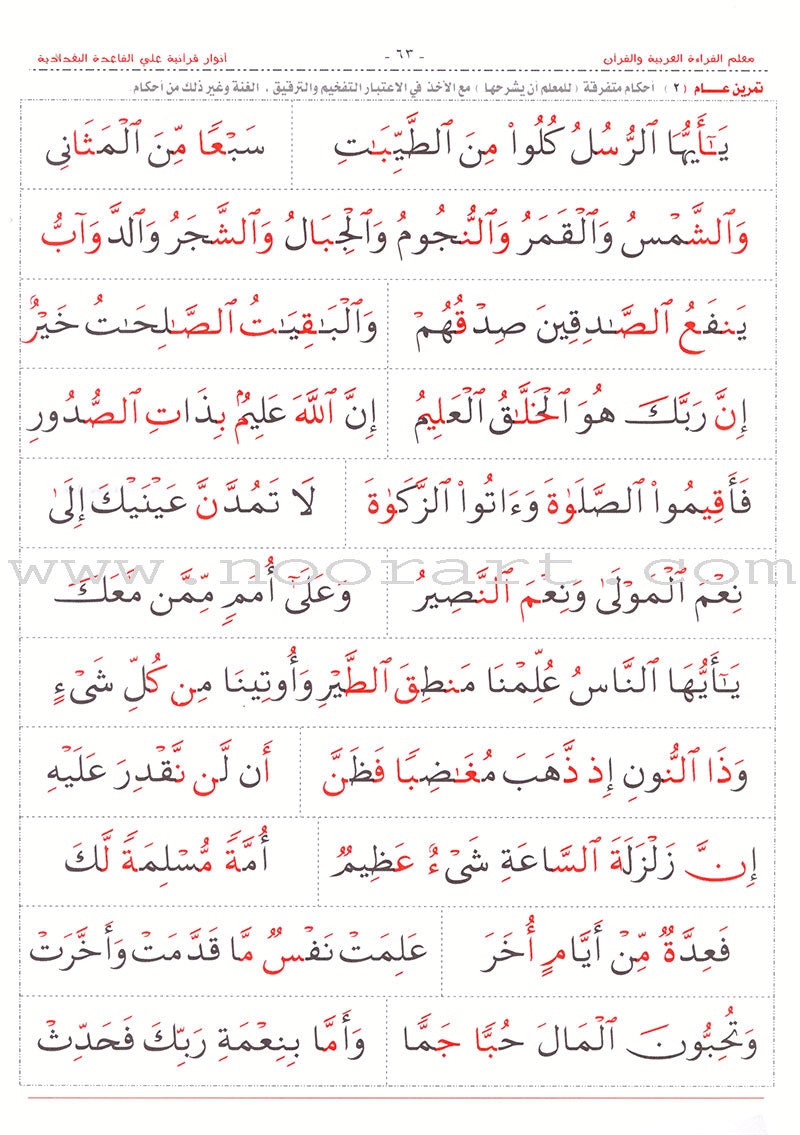 معلم القراءة العربية والقرآن - ٦٣ - أنوار قرآنية على القاعدة البغدادية
تمرين عام (٢) أحكام متفرقة (للمعلم أن يشرحها) مع الأخذ في الاعتبار التفخيم والترقيق . الغنة وغير ذلك من أحكام
يَـٰٓأَيُّهَا ٱلرُّسُلُ كُلُوا۟ مِنَ ٱلطَّيِّبَـٰتِ سَبْعًا مِّنَ ٱلْمَثَانِى
وَٱلشَّمْسُ وَٱلْقَمَرُ وَٱلنُّجُومُ وَٱلْجِبَالُ وَٱلشَّجَرُ وَٱلدَّوَآبُّ
يَنفَعُ ٱلصَّـٰدِقِينَ صِدْقُهُمْ وَٱلْبَـٰقِيَـٰتُ ٱلصَّـٰلِحَـٰتُ خَيْرٌ
إِنَّ رَبَّكَ هُوَ ٱلْخَلَّـٰقُ ٱلْعَلِيمُ إِنَّ ٱللَّهَ عَلِيمٌۢ بِذَاتِ ٱلصُّدُورِ
فَأَقِيمُوا۟ ٱلصَّلَوٰةَ وَءَاتُوا۟ ٱلزَّكَوٰةَ لَا تَمُدَّنَّ عَيْنَيْكَ إِلَىٰ
www.noorart.com
نِعْمَ ٱلْمَوْلَىٰ وَنِعْمَ ٱلنَّصِيرُ وَعَلَىٰٓ أُمَمٍ مِّمَّن مَّعَكَ
يَـٰٓأَيُّهَا ٱلنَّاسُ عُلِّمْنَا مَنطِقَ ٱلطَّيْرِ وَأُوتِينَا مِن كُلِّ شَىْءٍ
وَذَا ٱلنُّونِ إِذ ذَّهَبَ مُغَـٰضِبًا فَظَنَّ أَن لَّن نَّقْدِرَ عَلَيْهِ
إِنَّ زَلْزَلَةَ ٱلسَّاعَةِ شَىْءٌ عَظِيمٌ أُمَّةً مُّسْلِمَةً لَّكَ
فَعِدَّةٌ مِّنْ أَيَّامٍ أُخَرَ عَلِمَتْ نَفْسٌ مَّا قَدَّمَتْ وَأَخَّرَتْ
وَتُحِبُّونَ ٱلْمَالَ حُبًّا جَمًّا وَأَمَّا بِنِعْمَةِ رَبِّكَ فَحَدِّثْ